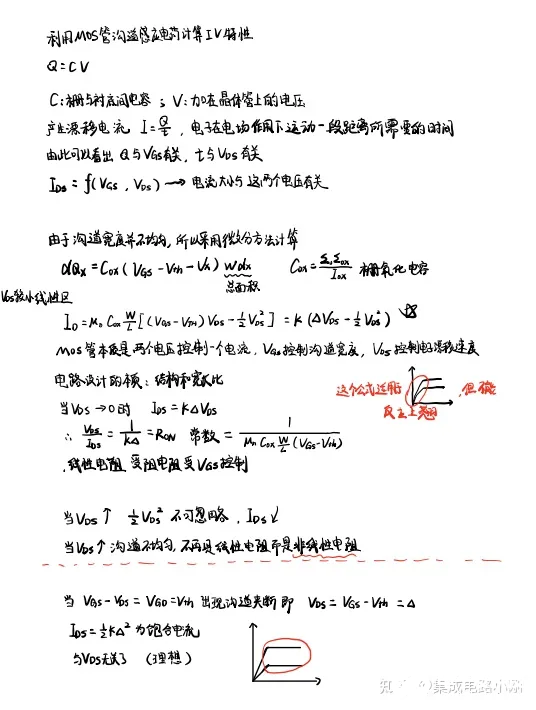 利用MOS管沟道感应电荷计算IV特性
Q=CV
C:栅与衬底间电容；V:加在晶体管上的电压
产生漂移电流 I=Q/t，电子在电场作用下运动一段距离所需要的时间
由此可以看出 Q与VGS有关，t与VDS有关
IDS = f(VGS, VDS) → 电流大小与这两个电压有关
由于沟道宽度并不均匀，所以采用微分方法计算
dQx = Cox(VGS-Vth-Vx)wdx Cox = 栅氧化电容
总面积
VDS较小线性区
ID = μn Cox W/L[(VGS-VTH)VDS-½VDS²] = K(ΔVDS-½VDS²)
MOS管本质是两个电压控制一个电流，VGS控制沟道宽度，VDS控制电子漂移速度
电路设计的本质：结构和宽长比
这个公式适用 ，但不能
反应上翘
当VDS→0时 IDS=KΔVDS
∴ VDS/IDS = 1/KΔ = RON 常数 = 1/(μn Cox W/L (VGS-Vth))
线性电阻 受阻电阻受VGS控制
当VDS↑ ½VDS² 不可忽略，IDS↙
当VDS↑ 沟道不均匀，不再是线性电阻而是非线性电阻
当 VGS-VDS=VGD=Vth 出现沟道夹断 即 VDS=VGS-Vth=Δ
IDS=½KΔ² 为饱合电流
与VDS无关了 (理想)
知乎 @集成电路小